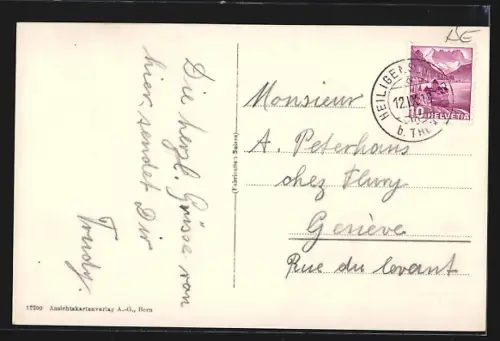 Die herzl. Grüsse von
hier, sendet Dir
Trudy.
17200 Ansichtskartenverlag A.-G., Bern
(Fabrication Suisse)
Monsieur
A. Peterhans
chez Flury
Genève
Rue du levant
10 HELVETIA
HEILIGENS
b. THUN
12.IX